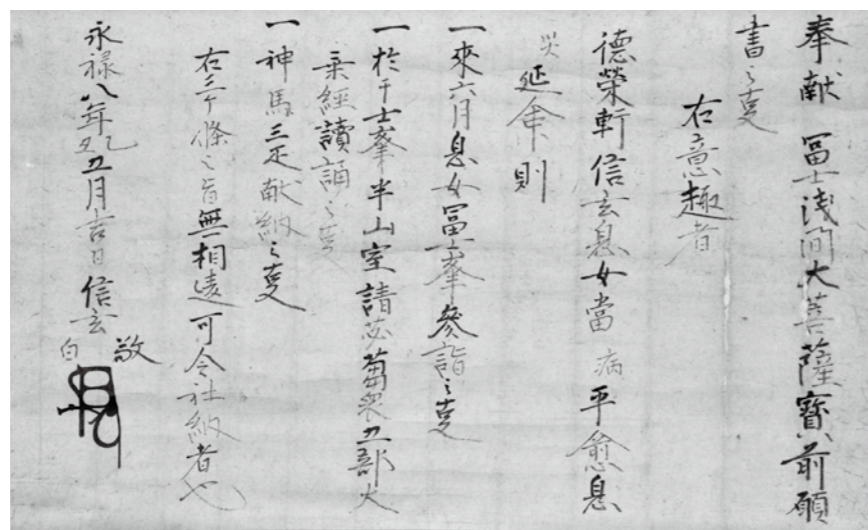 奉献 冨士浅間大菩薩寳前願
書之叓
右意趣者
德榮軒信玄息女當病平愈息
災延命則
一來六月息女冨士峯參詣之叓
一於于士峯半山室請苾蒭衆五部大
乗經讀誦之叓
一神馬三疋献納之叓
右三ケ條之旨無相違可令社納者也
永禄八年乙丑五月吉日信玄
敬白